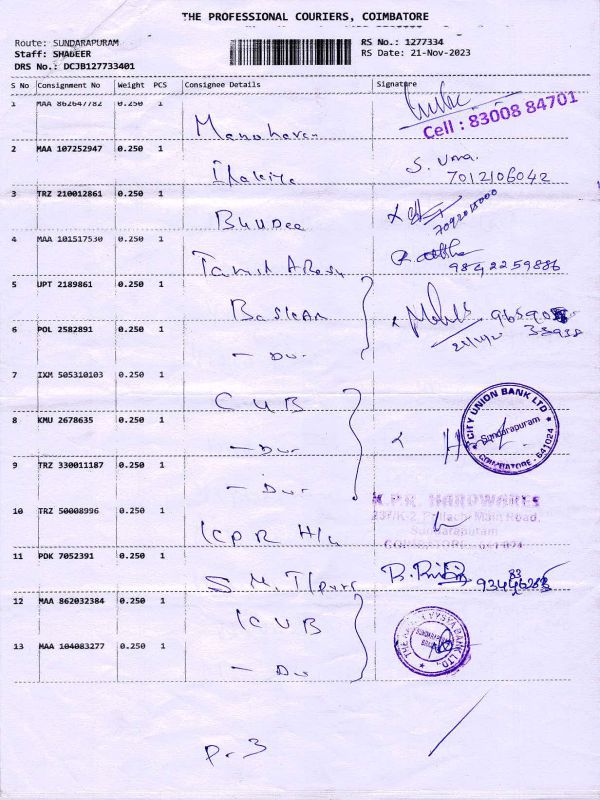 THE PROFESSIONAL COURIERS, COIMBATORE
Route: SUNDARAPURAM
Staff: SHABEER
DRS No.: DCJB127733401
RS No.: 1277334
RS Date: 21-Nov-2023
S No Consignment No Weight PCS Consignee Details Signature
1 MAA 862647782 0.250 1 Manoharan
Cell : 83008 84701
2 MAA 107252947 0.250 1 S. Uma.
7012106042
3 TRZ 210012861 0.250 1
4 MAA 101517530 0.250 1 Tamil
9842259886
5 UPT 2189861 0.250 1 Baskar
6 POL 2582891 0.250 1 - Du-
7 IXM 505310103 0.250 1 CUB
8 KMU 2678635 0.250 1 - Du-
CITY UNION BANK LTD
Sundarapuram
COIMBATORE - 641024
9 TRZ 330011187 0.250 1 - Du-
10 TRZ 50008996 0.250 1 KPR H/w
K.P.R. HARDWARES
Main Road,
Sundarapuram
11 PDK 7052391 0.250 1 S. M.
12 MAA 862032384 0.250 1 KUB
13 MAA 104083277 0.250 1 - Du
VYSYA BANK LTD.
P- 3